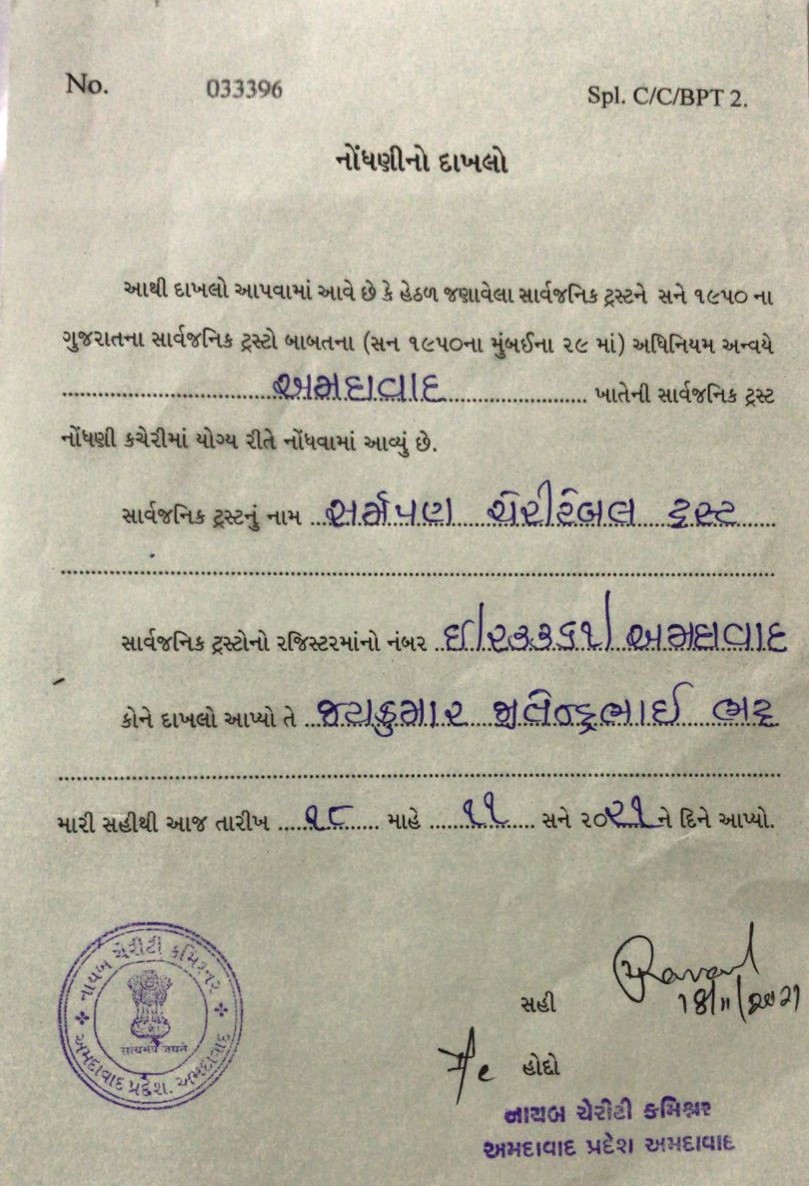 No. 033396 Spl. C/C/BPT 2.
નોંધણીનો દાખલો
આથી દાખલો આપવામાં આવે છે કે હેઠળ જણાવેલા સાર્વજનિક ટ્રસ્ટને સને ૧૯૫૦ ના
ગુજરાતના સાર્વજનિક ટ્રસ્ટો બાબતના (સન ૧૯૫૦ના મુંબઈના ૨૯ માં) અધિનિયમ અન્વયે
અમદાવાદ ખાતેની સાર્વજનિક ટ્રસ્ટ
નોંધણી કચેરીમાં યોગ્ય રીતે નોંધવામાં આવ્યું છે.
સાર્વજનિક ટ્રસ્ટનું નામ સર્મપણ ચેરીટેબલ ટ્રસ્ટ
સાર્વજનિક ટ્રસ્ટોનો રજિસ્ટરમાંનો નંબર ઈ/૨૩૩૬૧/અમદાવાદ
કોને દાખલો આપ્યો તે જયકુમાર ભટ્ટ
મારી સહીથી આજ તારીખ ૧૮ માહે ૧૧ સને ૨૦૨૧ને દિને આપ્યો.
નાયબ ચેરીટી કમિશ્નર
सत्यमेव जयते
અમદાવાદ પ્રદેશ. અમદાવાદ
સહી
18/11/2021
હોદ્દો
નાયબ ચેરીટી કમિશ્નર
અમદાવાદ પ્રદેશ અમદાવાદ